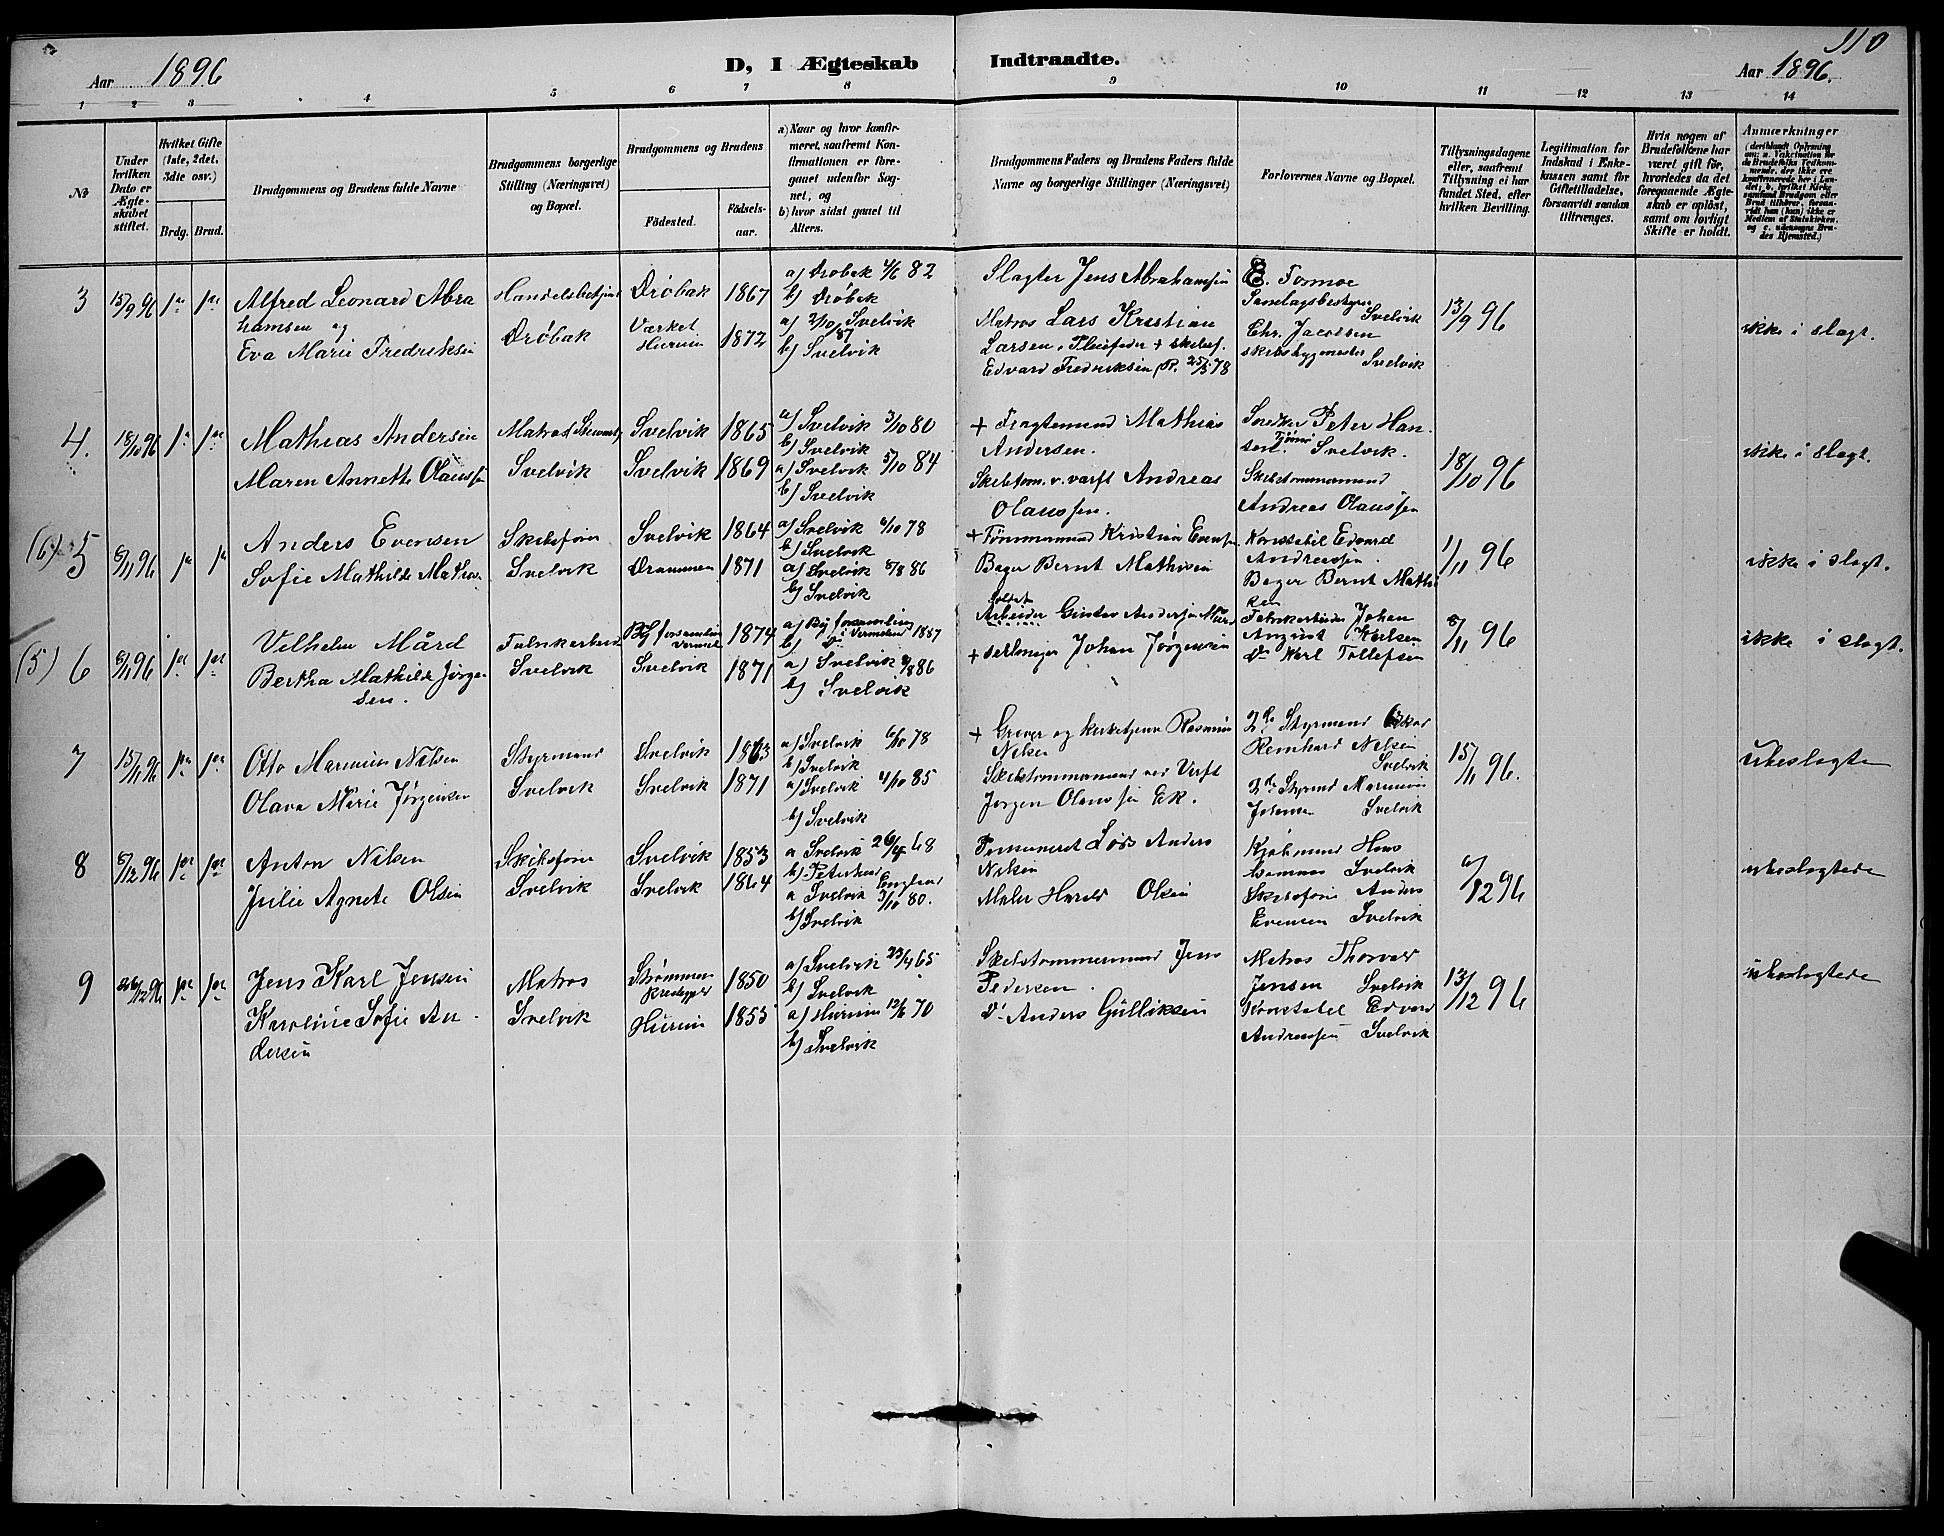 110
Aar 1896
D, I Ægteskab Indtraadte.
Aar 1896.
1 2 3 4 5 6 7 8 9 10 11 12 13 14
№
Under hvilken Dato er Ægteskabet stiftet.
Hvilket Gifte (1ste, 2det, 3die osv.)
Brdg. Brud.
Brudgommens og Brudens fulde Navne
Brudgommens borgerlige Stilling (Næringsvei) og Bopæl.
Brudgommens og Brudens
Födested. Födselsaar.
a) Naar og hvor konfirmeret, saafremt Konfirmationen er foregaaet udenfor Sognet, og
b) hvor sidst gaaet til Alters.
Brudgommens Faders og Brudens Faders fulde Navne og borgerlige Stillinger (Næringsvei)
Forlovernes Navne og Bopæl.
Tillysningsdagene eller, saafremt Tillysning ei har fundet Sted, efter hvilken Bevilling.
Legitimation for Indskud i Enkekassen samt for Giftetilladelse, forsaavidt saadan tiltrænges.
Hvis nogen af Brudefolkene har været gift før, hvorledes da det foregaaende Ægteskab er opløst, samt om lovligt Skifte er holdt.
Anmærkninger
3 15/9 96 1ste 1ste
Alfred Leonard Abrahamsen og
Eva Marie Fredriksen
Drøbak
Drøbak 1867
Værket Hurum 1872
a) Drøbak 4/6 82
b) Drøbak
a) 2/10 87 Svelvik
b) Svelvik
Slagter Jens Abrahamsen
Matros Lars Kristian
Larsen, Pleiefader + skibsf.
Edvard Fredriksen
E. Formoe
Samlagsbestyrer Svelvik
Chr. Jacobsen
skibsbygmester Svelvik
13/9 96
ikke i slagt.
4. 18/10 96
Mathias Andersen
Maren Annette Olaussen
Matros
Svelvik
Svelvik 1865
Svelvik 1869
a) Svelvik 3/10 80
b) Svelvik
a) Svelvik 5/10 84
b) Svelvik
+ Fragtemand Mathias
Andersen.
Skibstøm. v. værft Andreas
Olaussen.
Snedker Peter Hansen. Svelvik.
Skibstømmermand
Andreas Olaussen
18/10 96
ikke i slagt.
(6) 5 8/11 96
Anders Evensen
Sofie Mathilde Mathisen
Skibsfører
Svelvik
Svelvik 1864
Drammen 1871
a) Svelvik 6/10 78
b) Svelvik
a) Svelvik 8/8 86
b) Svelvik
+ Tømmermand Kristian Evensen
Bager Bernt Mathisen
Konstabel Edvard
Andreassen.
Bager Bernt Mathisen
1/11 96
ikke i slagt.
(5) 6 8/11 96
Vilhelm Mård
Bertha Mathilde Jørgensen.
Svelvik
1874
Svelvik 1871
a) Svelvik 8/8 86
b) Svelvik
Arbeider Gustav
Johan Jørgensen
Fabrikarbeider Johan
August Karlsen
Do Karl Tollefsen
8/11 96
ikke i slagt.
7 15/11 96
Otto Marinius Nilsen
Olava Marie Jørgensen
Styrmand
Svelvik
Svelvik 1863
Svelvik 1871
a) Svelvik 6/10 78
b) Svelvik
a) Svelvik 4/10 85
b) Svelvik
+ Graver og kirketjener Rasmus
Nilsen
Skibstømmermand ved Verft
Jørgen Olaussen Ek.
2den Styrmand Oskar
Reinhard Nilsen
Svelvik
2den Styrmd Marinius
Johansen Svelvik
15/11 96.
ubeslægtede
8 8/12 96
Anton Nilsen
Julie Agnete Olsen
Skibsfører
Svelvik
Svelvik 1853
Svelvik 1864
a Svelvik 26/4 68
b) England
a Svelvik 3/10 80.
b) Svelvik
Permitteret Lods Anders
Nilsen
Maler Harald Olsen
Kjøbmand Hans
Svelvik
Skibsfører Anders
Evensen Svelvik
6/12 96
ubeslægtede
9 26/12 96
Jens Karl Jensen
Karoline Sofie Andersen
Matros
Svelvik
Strømmen 1850
Hurum 1855
a) Svelvik 23/4 65
b) Svelvik
a) Hurum 12/6 70
b) Svelvik
Skibstømmermand Jens
Pedersen.
Do Anders Gulliksen
Matros Thorvald
Jensen Svelvik
Konstabel Edvard
Andreassen Svelvik
13/12 96
ubeslægtede